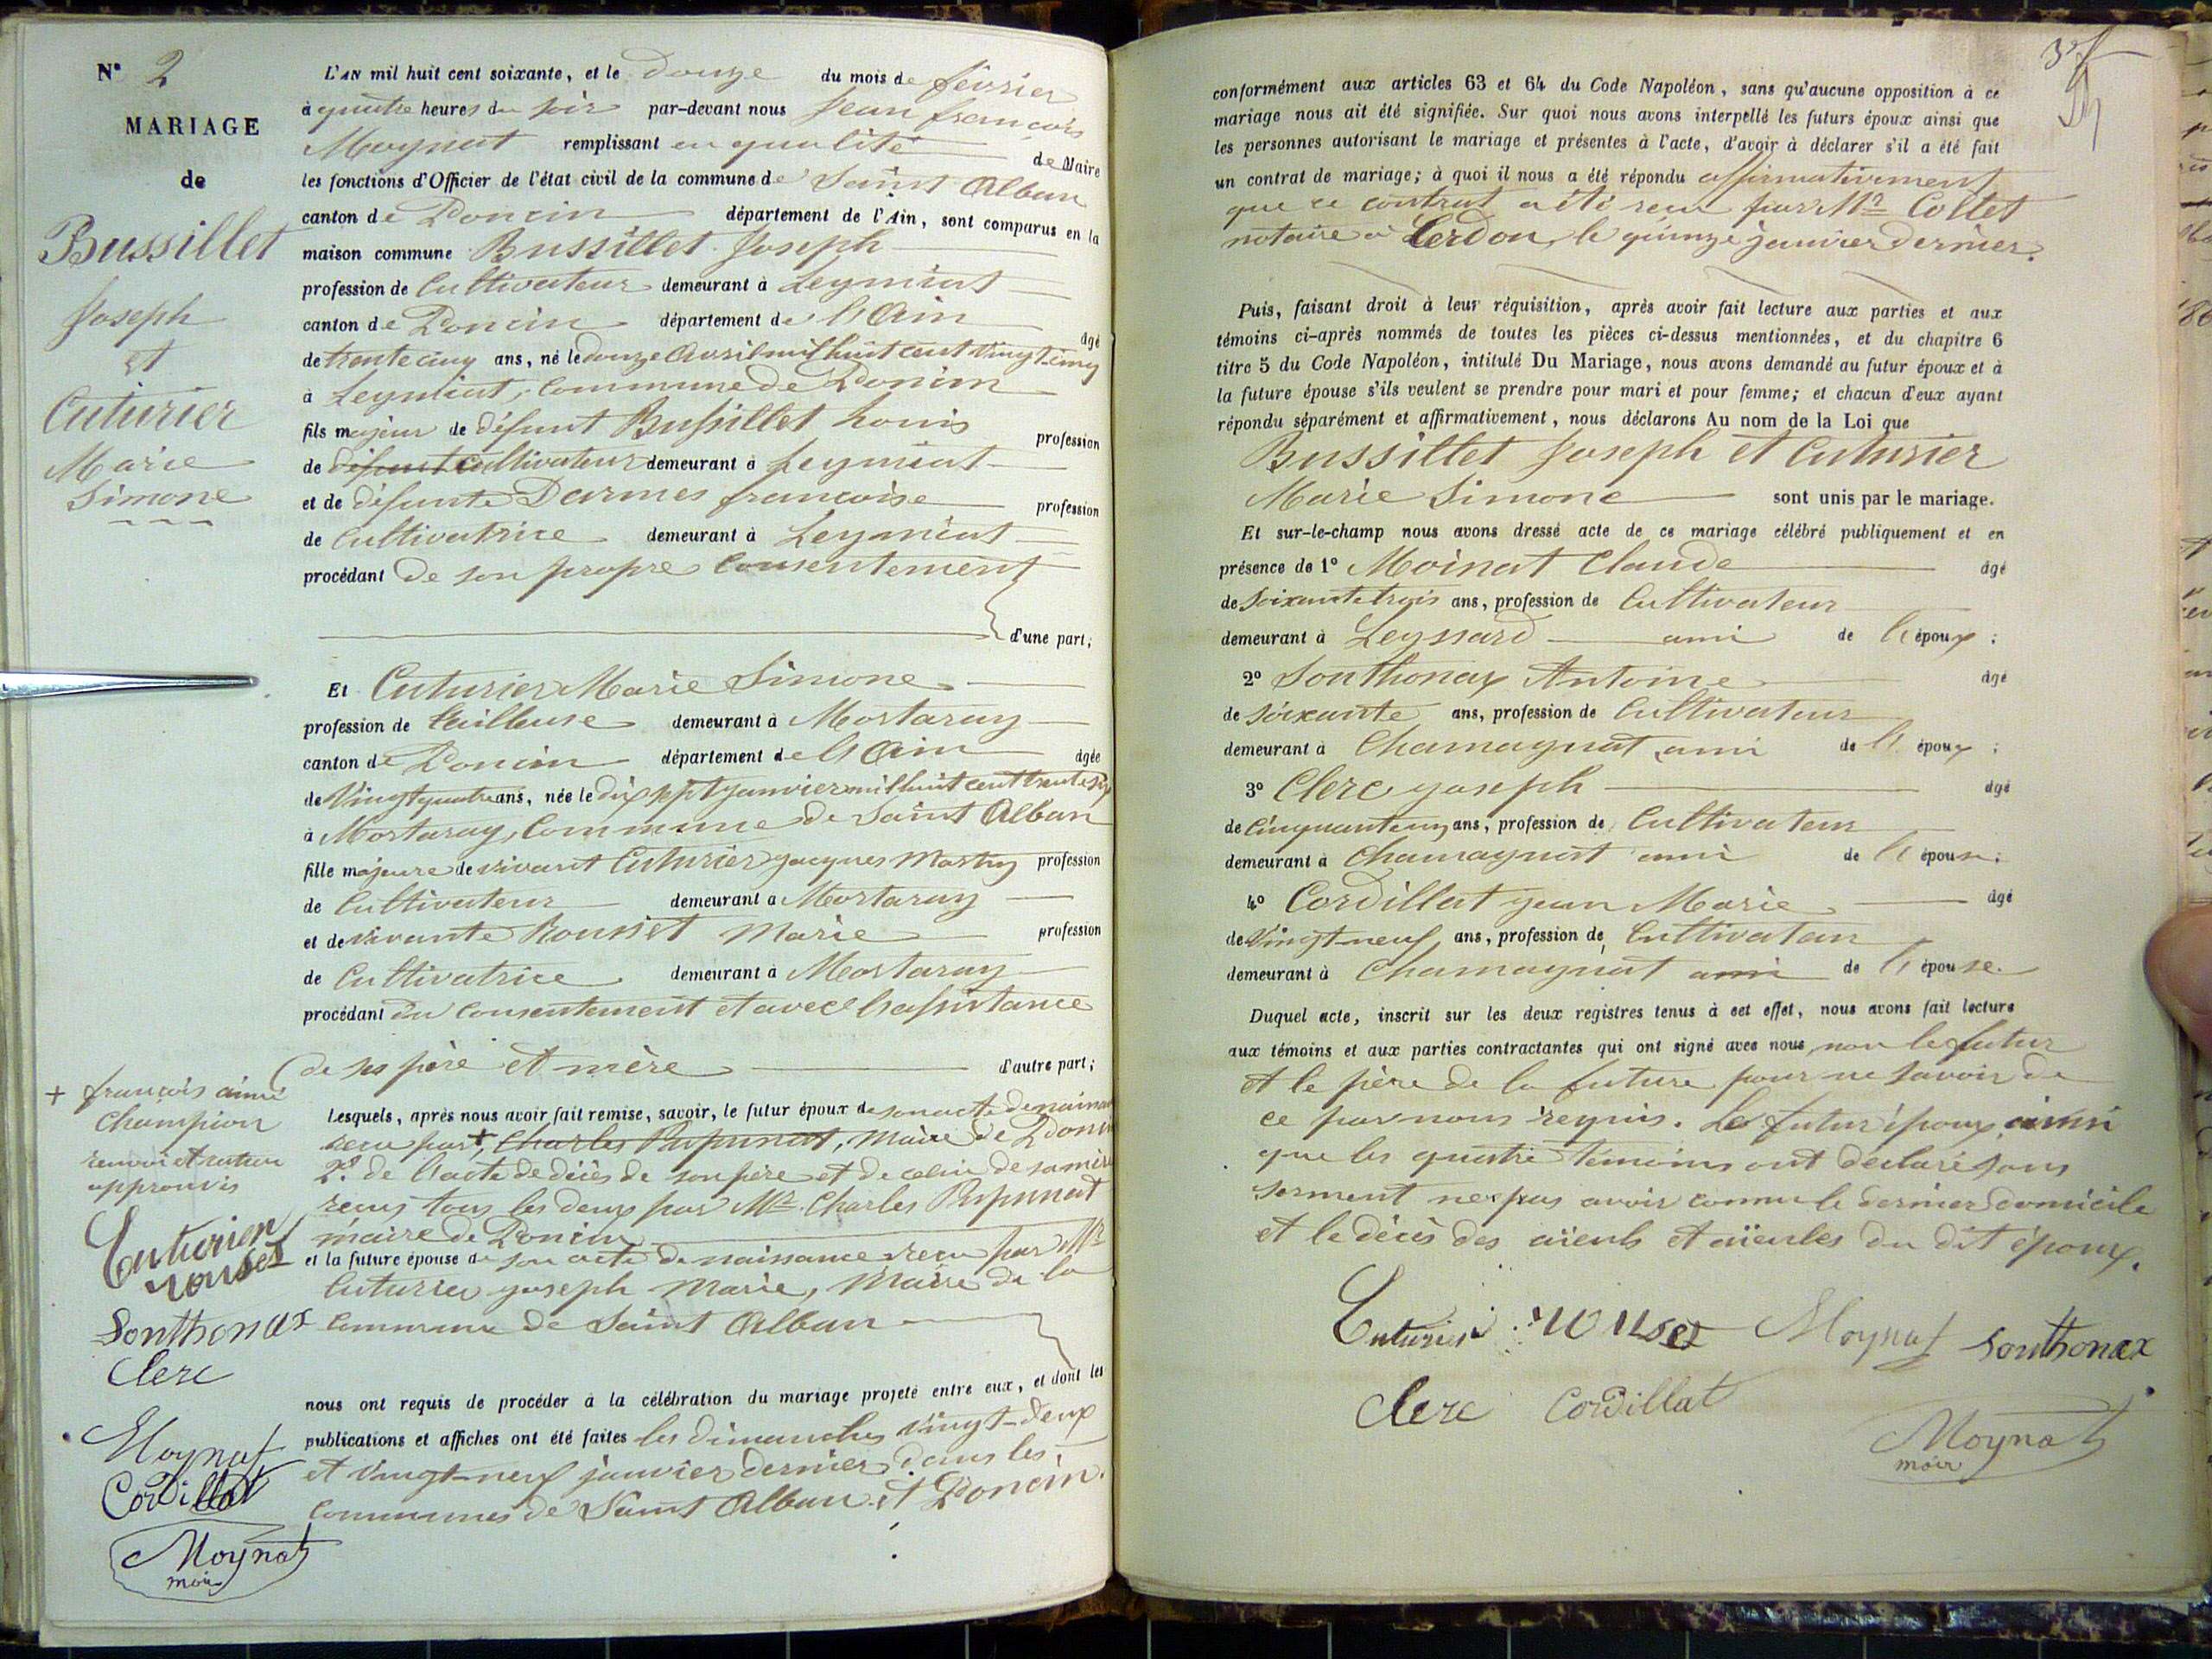 N° 2
MARIAGE
de
Bussillet
Joseph
et
Cuturier
Marie
Simone
L'AN mil huit cent soixante, et le douze du mois de février
à quatre heures du soir par-devant nous Jean françois
Moynat remplissant en qualité de Maire
les fonctions d'Officier de l'état civil de la commune de Saint Alban
canton de Poncin département de l'Ain, sont comparus en la
maison commune Bussillet Joseph
profession de Cultivateur demeurant à Leymiat
canton de Poncin département de l'Ain âgé
de trente cinq ans, né le douze Avril mil huit cent vingt-cinq
à Leymiat, Commune de Poncin
fils majeur de défunt Bussillet Louis profession
de défunt Cultivateur demeurant à Leymiat
et de défunte Darmes françoise profession
de Cultivatrice demeurant à Leymiat
procédant de son propre Consentement
d'une part;
Et Cuturier Marie Simone
profession de tailleuse demeurant à Mortaray
canton de Poncin département de l'Ain âgée
de Vingt quatre ans, née le dix sept janvier mil huit cent trente six
à Mortaray, Commune de Saint Alban
fille majeure de vivant Cuturier jacques Martin profession
de Cultivateur demeurant à Mortaray
et de vivante Rousset Marie profession
de Cultivatrice demeurant à Mortaray
procédant du Consentement et avec l'assistance
de ses père et mère d'autre part;
Lesquels, après nous avoir fait remise, savoir, le futur époux de son acte de naissance
reçu par +, Charles , Maire de Poncin
2° de l'acte de décès de son père et de celui de sa mère
reçus tous les deux par Mr Charles
maire de Poncin
et la future épouse de son acte de naissance reçu par Mr
Cuturier joseph Marie, Maire de la
Commune de Saint Alban
nous ont requis de procéder à la célébration du mariage projeté entre eux, et dont les
publications et affiches ont été faites les dimanches vingt-deux
et vingt-neuf janvier dernier dans les
communes de Saint Alban et Poncin.
+ françois aimé
Champion
renvoi et rature
approuvés
Cuturier
rouset
Sonthonax
Clerc
Moynat
Cordillat
Moynat
maire
conformément aux articles 63 et 64 du Code Napoléon, sans qu'aucune opposition à ce
mariage nous ait été signifiée. Sur quoi nous avons interpellé les futurs époux ainsi que
les personnes autorisant le mariage et présentes à l'acte, d'avoir à déclarer s'il a été fait
un contrat de mariage; à quoi il nous a été répondu affirmativement
que ce contrat a été reçu par Me Collet
notaire à Cerdon, le quinze janvier dernier.
Puis, faisant droit à leur réquisition, après avoir fait lecture aux parties et aux
témoins ci-après nommés de toutes les pièces ci-dessus mentionnées, et du chapitre 6
titre 5 du Code Napoléon, intitulé Du Mariage, nous avons demandé au futur époux et à
la future épouse s'ils veulent se prendre pour mari et pour femme; et chacun d'eux ayant
répondu séparément et affirmativement, nous déclarons Au nom de la Loi que
Bussillet Joseph et Cuturier
Marie Simone sont unis par le mariage.
Et sur-le-champ nous avons dressé acte de ce mariage célébré publiquement et en
présence de 1° Moinat Claude âgé
de soixante trois ans, profession de Cultivateur
demeurant à Leyssard ami de l'époux ;
2° Sonthonax Antoine âgé
de soixante ans, profession de Cultivateur
demeurant à Chamagnat ami de l'époux ;
3° Clerc joseph âgé
de Cinquante un ans, profession de Cultivateur
demeurant à Chamagnat ami de l'épouse;
4° Cordillat jean Marie âgé
de Vingt-neuf ans, profession de Cultivateur
demeurant à Chamagnat ami de l'épouse.
Duquel acte, inscrit sur les deux registres tenus à cet effet, nous avons fait lecture
aux témoins et aux parties contractantes qui ont signé avec nous non le futur
et le père de la future pour ne savoir de
ce par nous requis. Le futur époux ainsi
que les quatre témoins ont déclaré sous
serment ne pas avoir connu le dernier domicile
et le décès des aïeuls et aïeules du dit époux.
Cuturier rouset Moynat Sonthonax
Clerc Cordillat
Moynat
maire